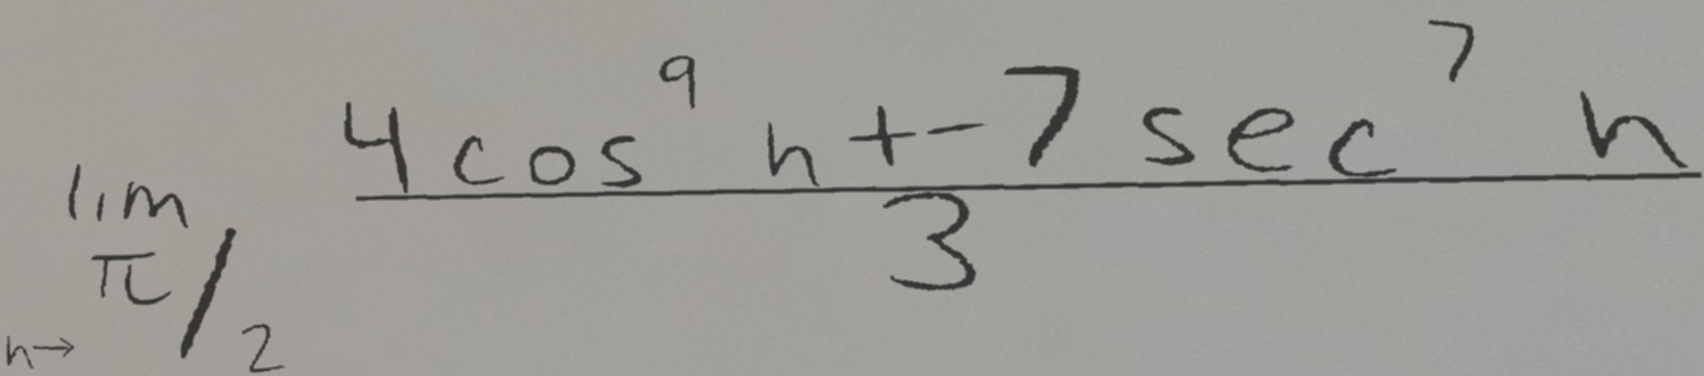 lim n→ π/2 (4 cos^9 n + -7 sec^7 n) / 3